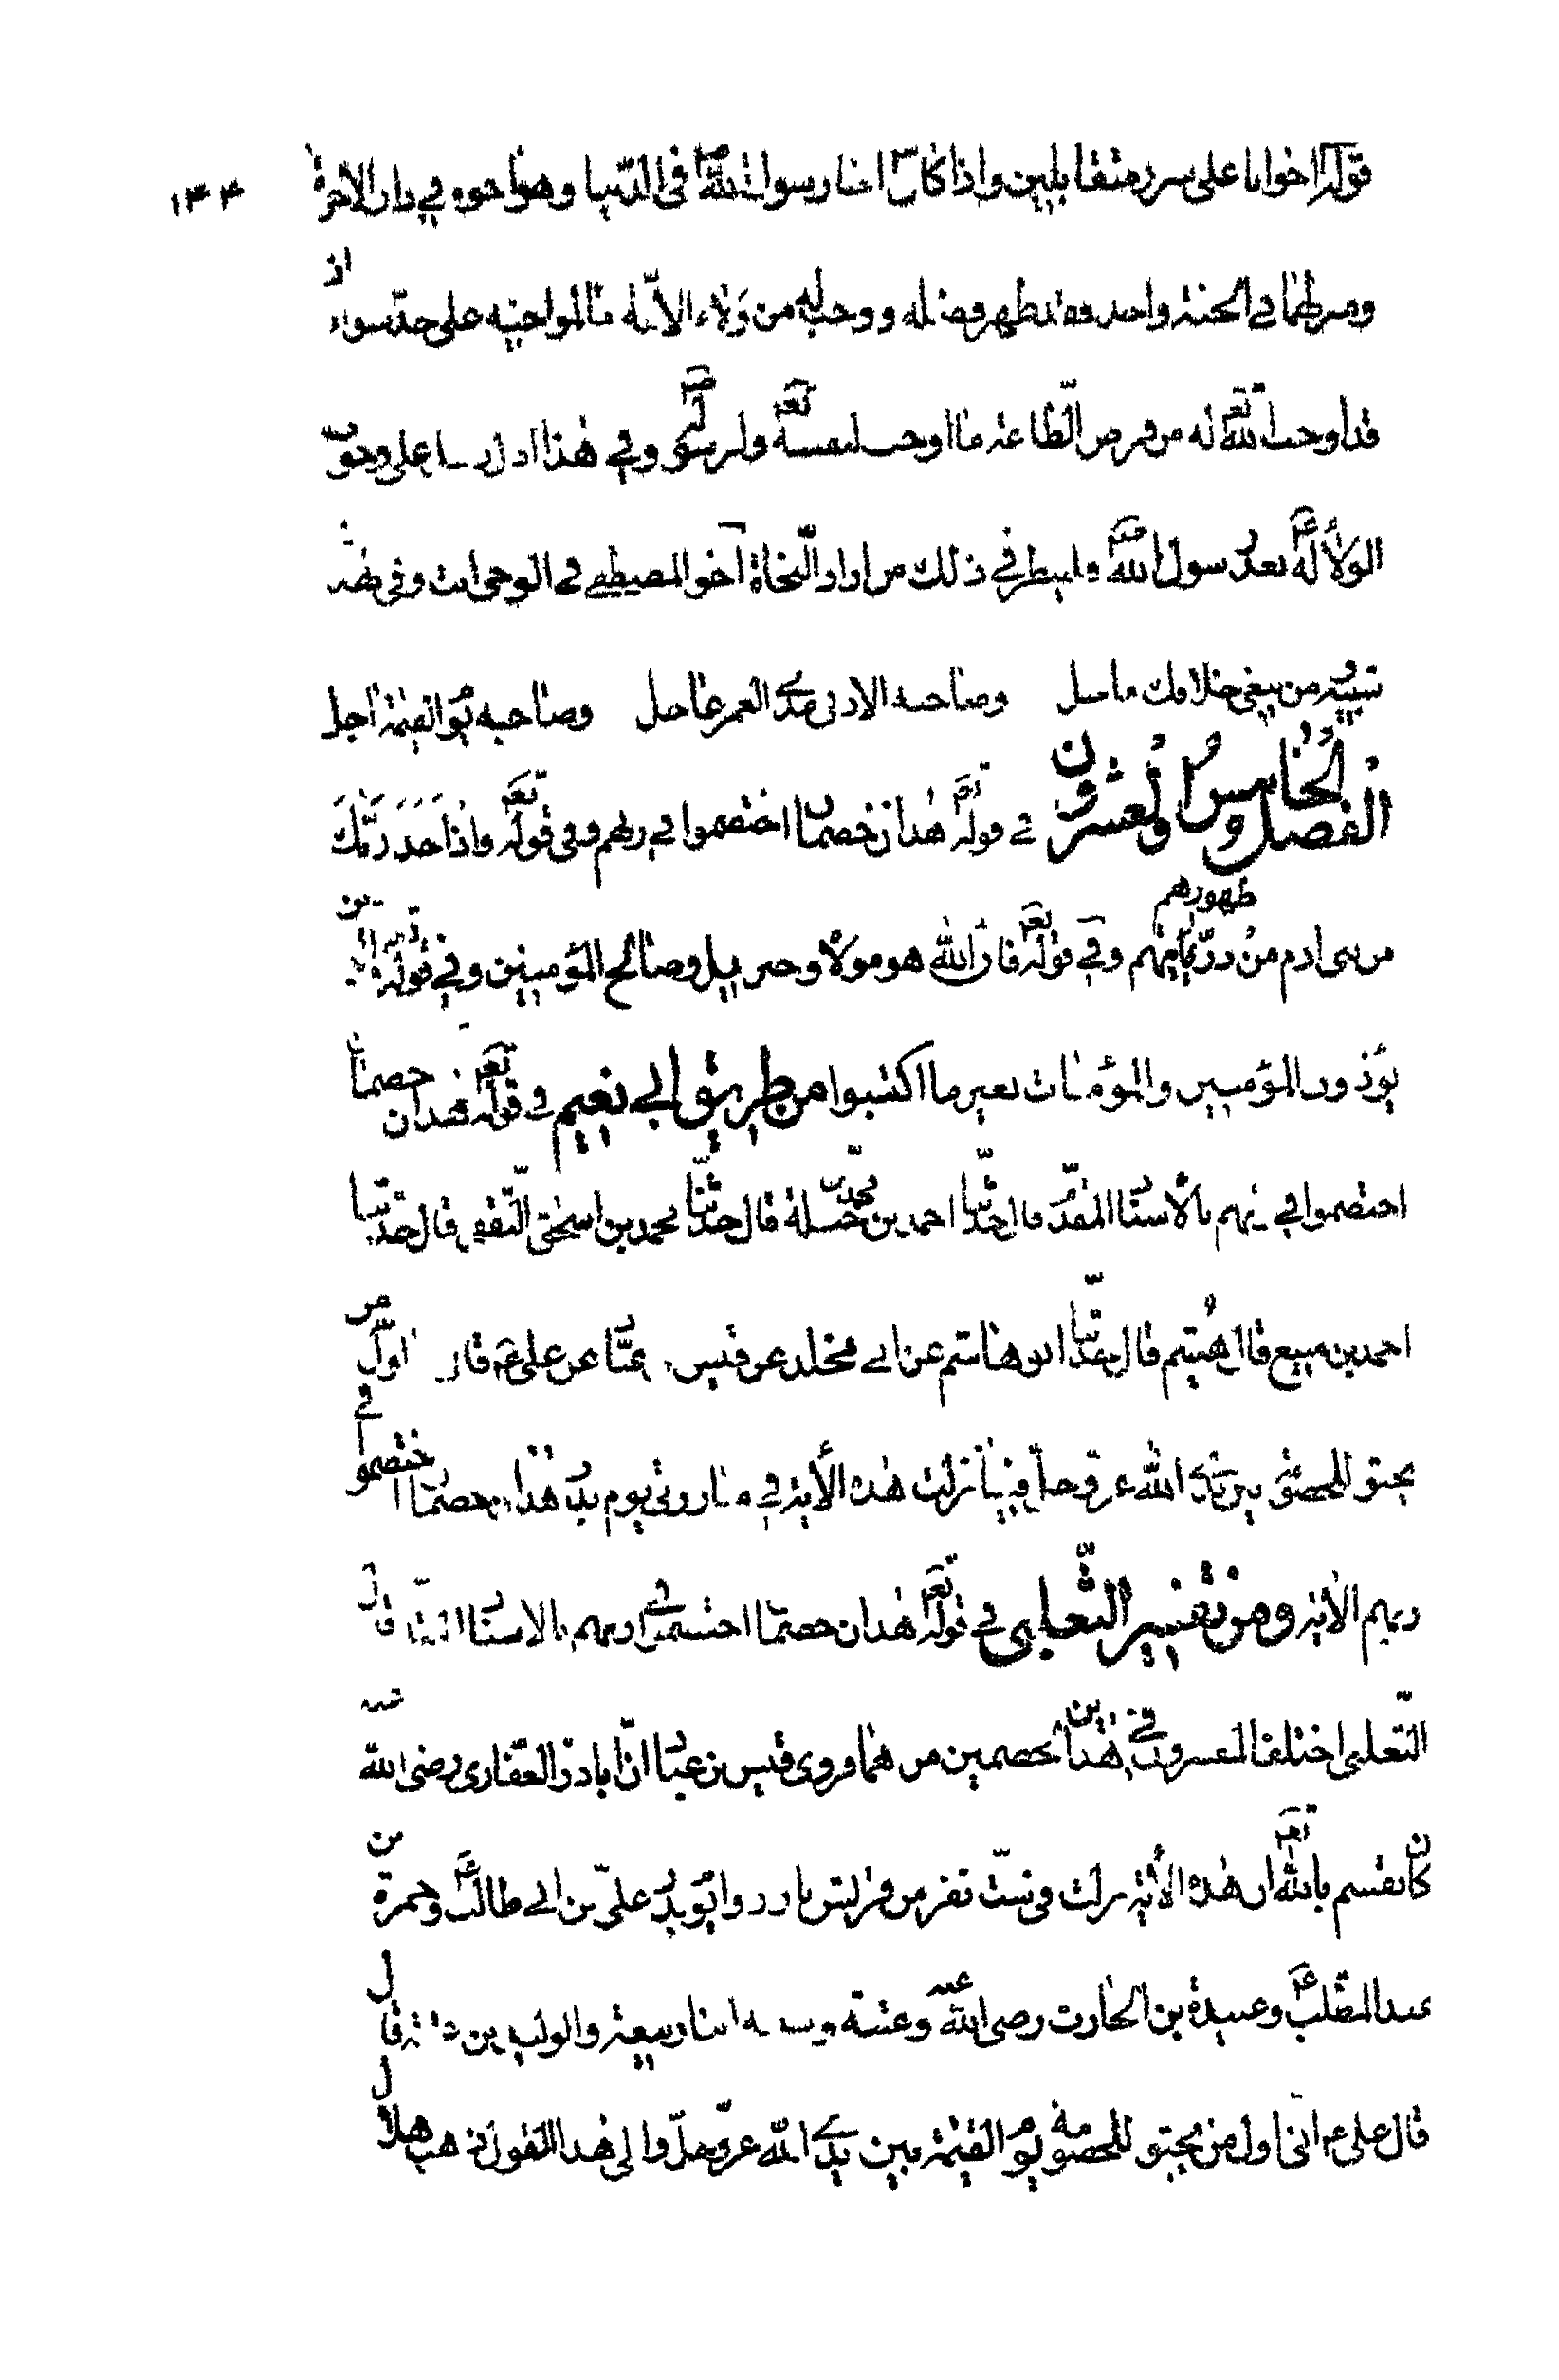 قوله اخوانا على سرر متقابلين واذا كان اختار رسول الله ص في الدنيا وهو اخوه في دار الاخرة ١٣٤
في الجنة واحد فقد ظهر فضله ووجب له من ولاء الامة ما لمواخيه على حد سواء اذ
قد اوجب الله تع له من فرض الطاعة ما اوجب لنفسه تع ولرسوله ص وفي هذا ادل على وجوب
الولاء له ع بعد رسول الله ص فلينظر في ذلك من اراد النجاة اخو المصطفى في الوحى انت وفى
من يبغي خلافك ماحل وصاحبه الادنى مدى العمر عاضل وصاحبه يوم القيمة اجل
الفصل الخامس والعشرون في قوله تع هذان خصمان اختصموا في ربهم وفي قوله تع واذ اخذ ربك
من بنى ادم من ظهورهم ذريتهم وفي قوله تع فان الله هو مولاه وجبريل وصالح المؤمنين وفي قوله تع الذين
يؤذون المؤمنين والمؤمنات بغير ما اكتسبوا من طريق ابي نعيم في قوله تع هذان خصمان
اختصموا في ربهم بالاسناد المقدم قال حدثنا احمد بن محمد بن جبلة قال حدثنا محمد بن اسحق الثقفي قال حدثنا
احمد بن منيع قال هشيم قال حدثنا ابو هاشم عن ابي مخلد عن قيس بن عباد عن على ع قال اول من
يجثو للخصومة بين يدى الله عز وجل فينا نزلت هذه الاية في مبارزتي يوم بدر هذان خصمان اختصموا في
ربهم الاية ومن تفسير الثعلبي في قوله تع هذان خصمان اختصموا في ربهم بالاسناد قال
الثعلبى اختلف المفسرون في هذين الخصمين من هما فروى قيس بن عباد ان اباذر الغفارى رضى الله عنه
كان يقسم بالله تع ان هذه الاية نزلت في ستة نفر من قريش تبارزوا يوم بدر على بن ابي طالب ع وحمزة بن
عبد المطلب ع وعبيدة بن الحارث رضى الله عنه وعتبة وشيبة ابنا ربيعة والوليد بن عتبة قال
قال على ع انى اول من يجثو للخصومة يوم القيمة بين يدى الله عز وجل والى هذا القول ذهب هلال